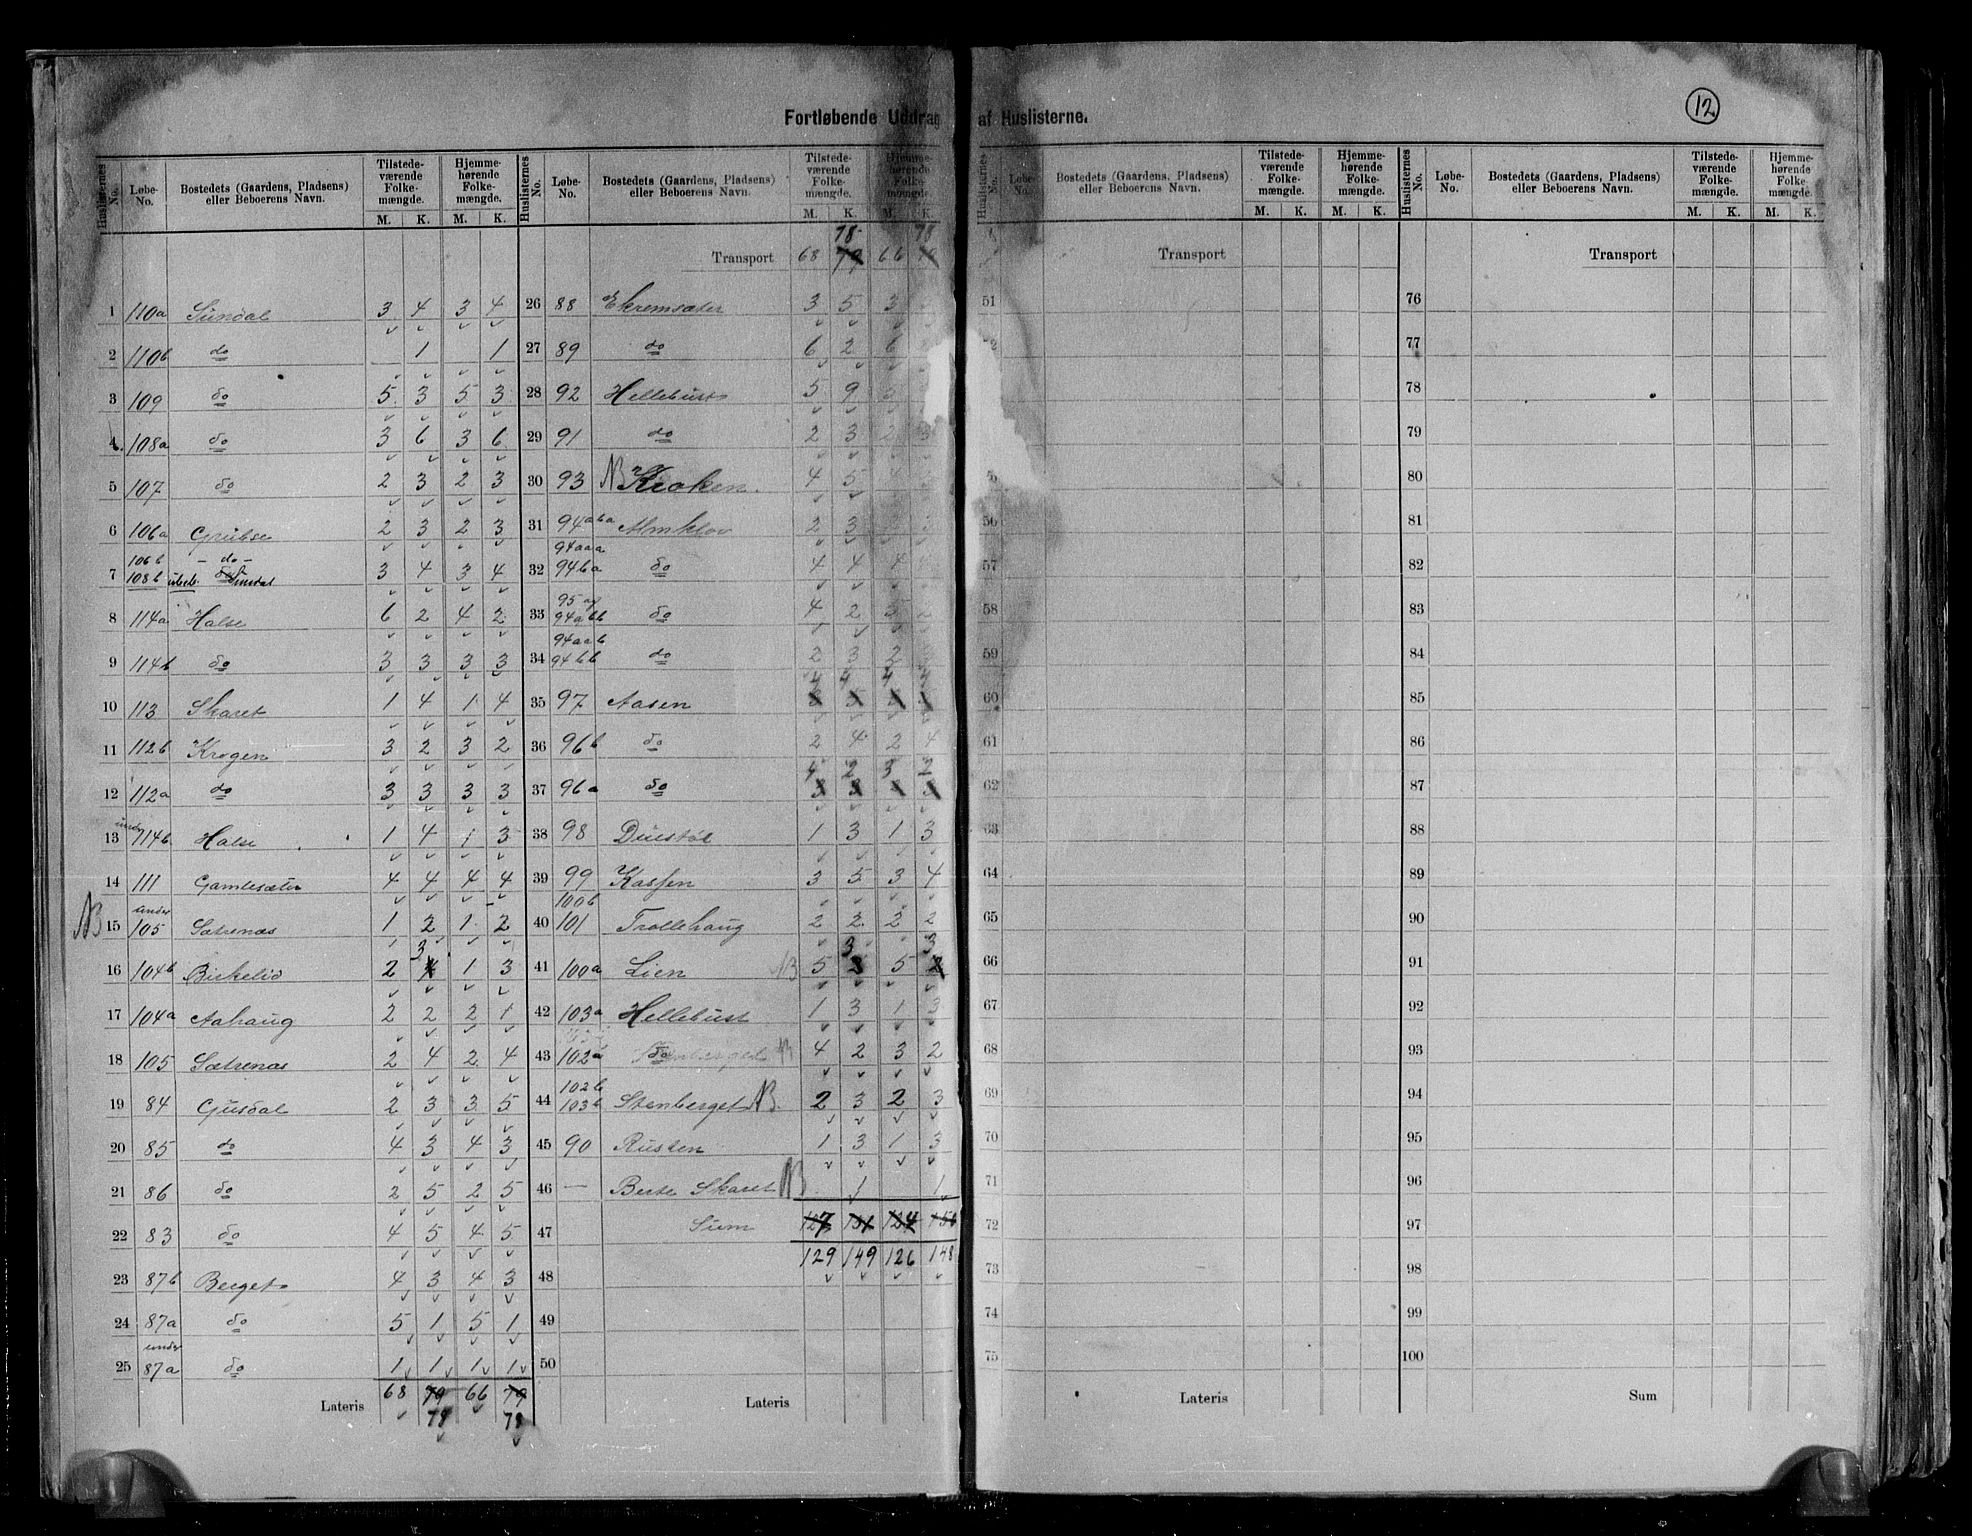 12
Fortløbende Uddrag af Huslisterne.
Huslisternes No. Løbe-No. Bostedets (Gaardens, Pladsens) eller Beboerens Navn. Tilstedeværende Folkemængde. M. K. Hjemmehørende Folkemængde. M. K.
1 110a Sundal 3 4 3 4
2 110b do 1 1
3 109 do 5 3 5 3
4 108a do 3 6 3 6
5 107 do 2 3 2 3
6 106a Grubse 2 3 2 3
106b - do -
7 108b 3 4 3 4
8 114a Halse 6 2 4 2
9 114b do 3 3 3 3
10 113 Skaret 1 4 1 4
11 112b Krogen 3 2 3 2
12 112a do 3 3 3 3
13 under 114b Halse 1 4 1 3
14 111 Gamlesæter 4 4 4 4
under
NB 15 105 Sætrenæs 1 2 1 2
3
16 104b Birkelid 2 4 1 3
17 104a Aahaug 2 2 2 1
18 105 Sætrenæs 2 4 2 4
19 84 Gusdal 2 3 3 5
20 85 do 4 3 4 3
21 86 do 2 5 2 5
22 83 do 4 5 4 5
23 87b Berget 4 3 4 3
24 87a do 5 1 5 1
under
25 87a do 1 1 1 1
Lateris 68 79 66 79
78 78
Huslisternes No. Løbe-No. Bostedets (Gaardens, Pladsens) eller Beboerens Navn. Tilstedeværende Folkemængde. M. K. Hjemmehørende Folkemængde. M. K.
78 78
Transport 68 79 66
26 88 Ekremsæter 3 5 3
27 89 do 6 2 6
28 92 Hellebust 5 9
29 91 do 2 3 2 3
30 93 NB Kroken 4 5
31 94aba Almklov 2 3
94aaa
32 94ba do 4 4 4
95
33 94abb do 4 2 3 2
94aab
34 94bb do 2 3 2
4 4 4
35 97 Aasen
36 96b do 2 4 2 4
4 2 3 2
37 96a do 3 3
38 98 Duestøl 1 3 1 3
39 99 Kassen 3 5 3 4
100b
40 101 Trollehaug 2 2 2 2
3 3
41 100a Lien NB 5 2 5 2
42 103a Hellebust 1 3 1 3
43 102a do 4 2 3 2
102b
44 103b Stenberget NB 2 3 2 3
45 90 Rusten 1 3 1 3
46 — Berte Skaret NB 1 1
47 Sum 127 151 124 150
129 149 126 148
48
49
50
Lateris
Huslisternes No. Løbe-No. Bostedets (Gaardens, Pladsens) eller Beboerens Navn. Tilstedeværende Folkemængde. M. K. Hjemmehørende Folkemængde. M. K.
Transport
51
56
57
58
59
60
61
62
63
64
65
66
67
68
69
70
71
72
73
74
75
Lateris
Huslisternes No. Løbe-No. Bostedets (Gaardens, Pladsens) eller Beboerens Navn. Tilstedeværende Folkemængde. M. K. Hjemmehørende Folkemængde. M. K.
Transport
76
77
78
79
80
81
82
83
84
85
86
87
88
89
90
91
92
93
94
95
96
97
98
99
100
Sum